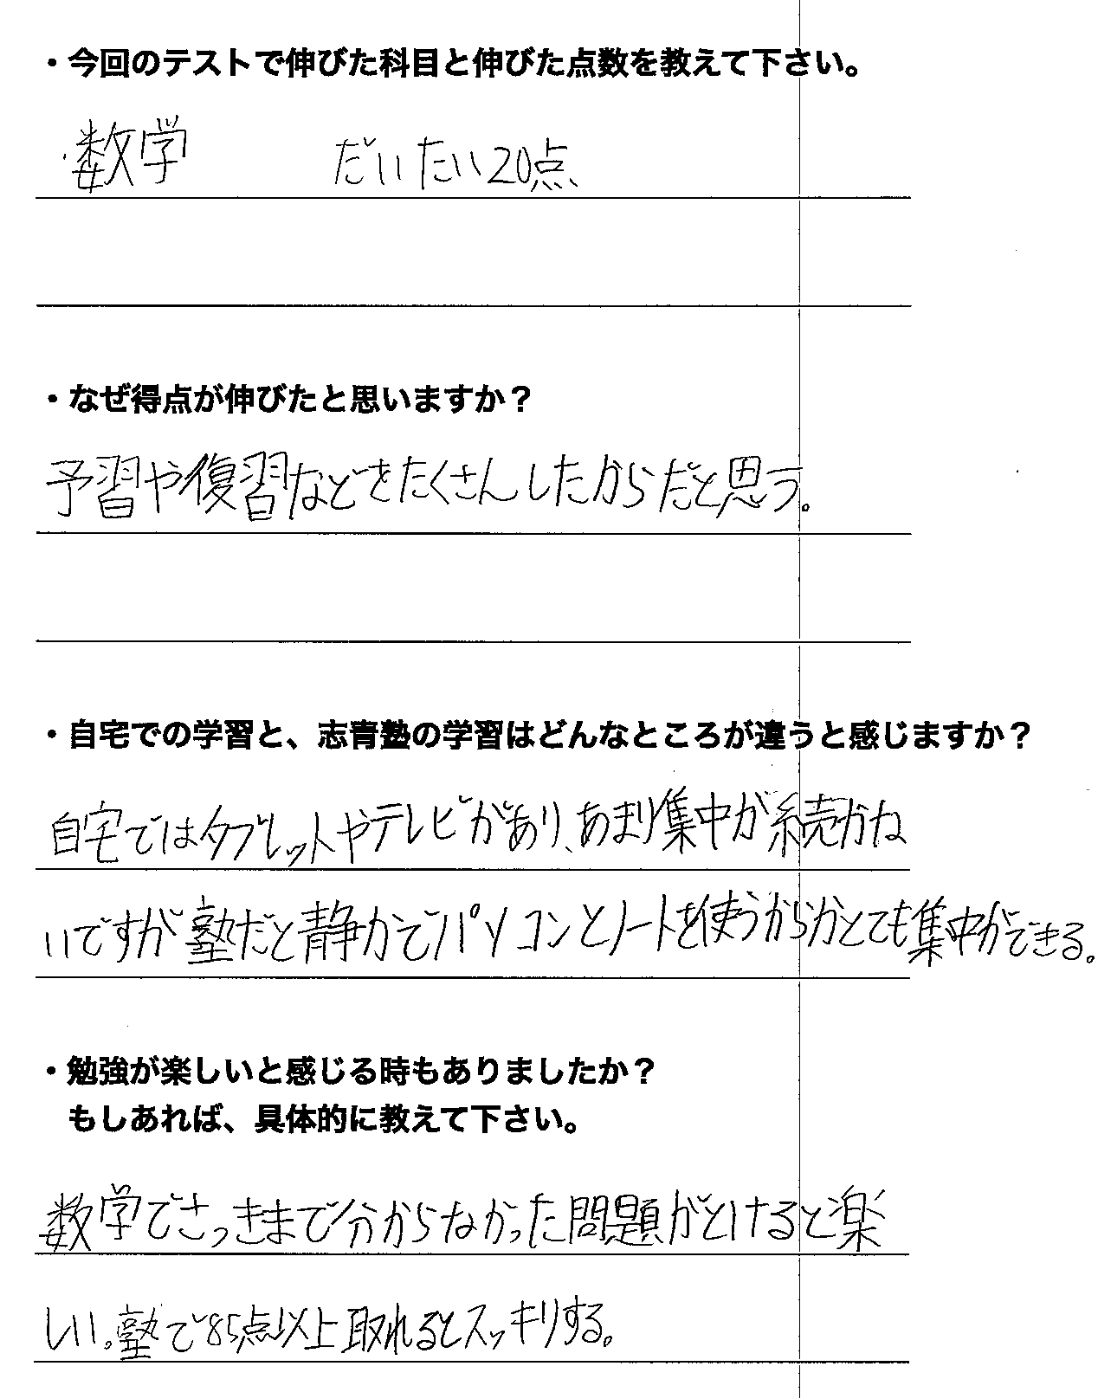 ・今回のテストで伸びた科目と伸びた点数を教えて下さい。
・数学 だいたい20点
・なぜ得点が伸びたと思いますか？
予習や復習などをたくさんしたからだと思う。
・自宅での学習と、志青塾の学習はどんなところが違うと感じますか？
自宅ではタブレットやテレビがあり、あまり集中が続かね
いですが塾だと静かでパソコンとノートを使うからかとても集中ができる。
・勉強が楽しいと感じる時もありましたか？
もしあれば、具体的に教えて下さい。
数学でさっきまで分からなかった問題がとけると楽
しい。塾で85点以上取れるとスッキリする。